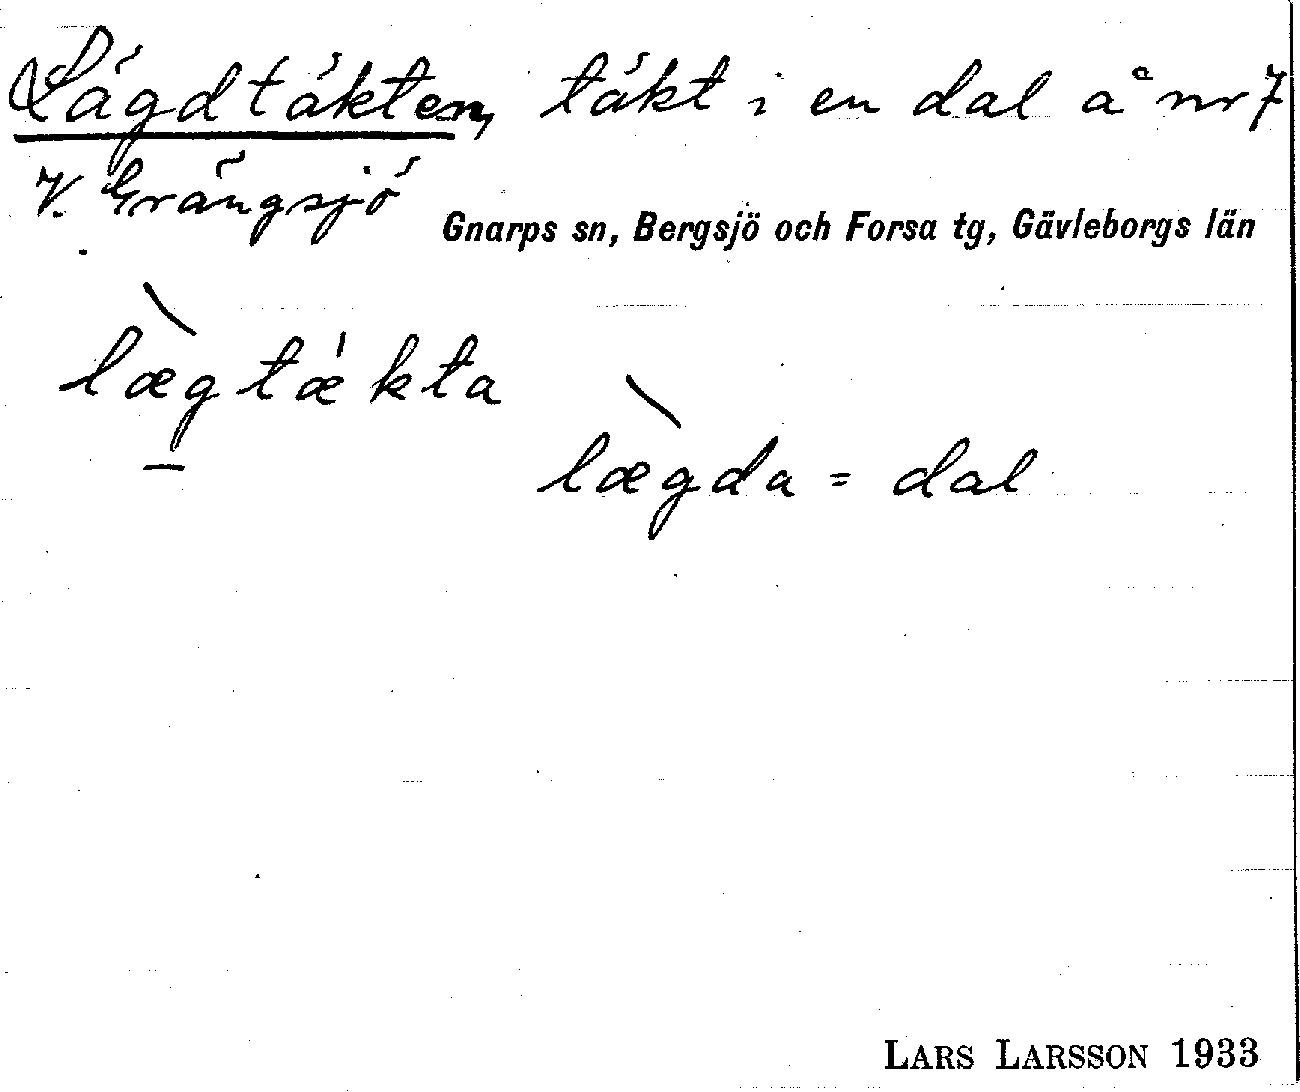 Lägdtäkten, täkt i en dal å nr 7
V. Grängsjö
Gnarps sn, Bergsjö och Forsa tg, Gävleborgs län
lægtækta
lægda = dal
LARS LARSSON 1933